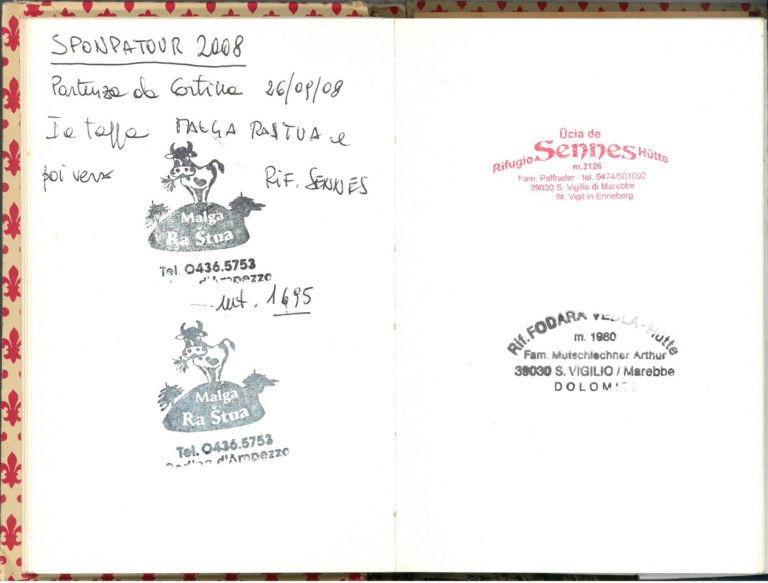 SPONPATOUR 2008
Partenza da Cortina 26/09/08
Ia tappa MALGA RASTUA e
poi verso RIF. SENNES
Malga
Ra Štua
Tel. 0436.5753
d'Ampezzo
mt. 1695
Malga
Ra Štua
Tel. 0436.5753
d'Ampezzo
Ücia de
Rifugio Sennes Hütte
m.2126
Fam. Palfrader - tel. 0474/501092
39030 S. Vigilio di Marebbe
St. Vigil in Enneberg
Rif. FODARA VEDLA-Hütte
m. 1980
Fam. Mutschlechner Arthur
39030 S. VIGILIO / Marebbe
DOLOMITI